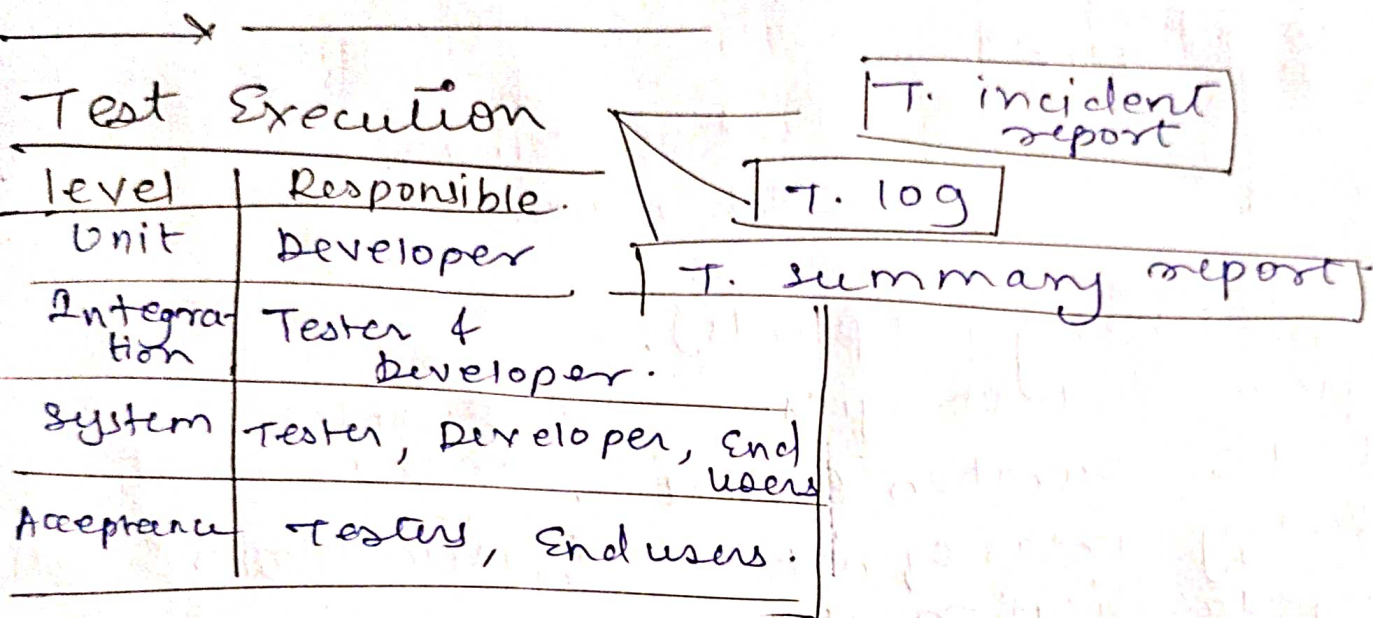 Test Execution
T. incident
report
T. log
T. summary report
level Responsible.
Unit Developer
Integra-
tion
Tester &
Developer.
System Tester, Developer, End
users
Acceptance Testers, End users.